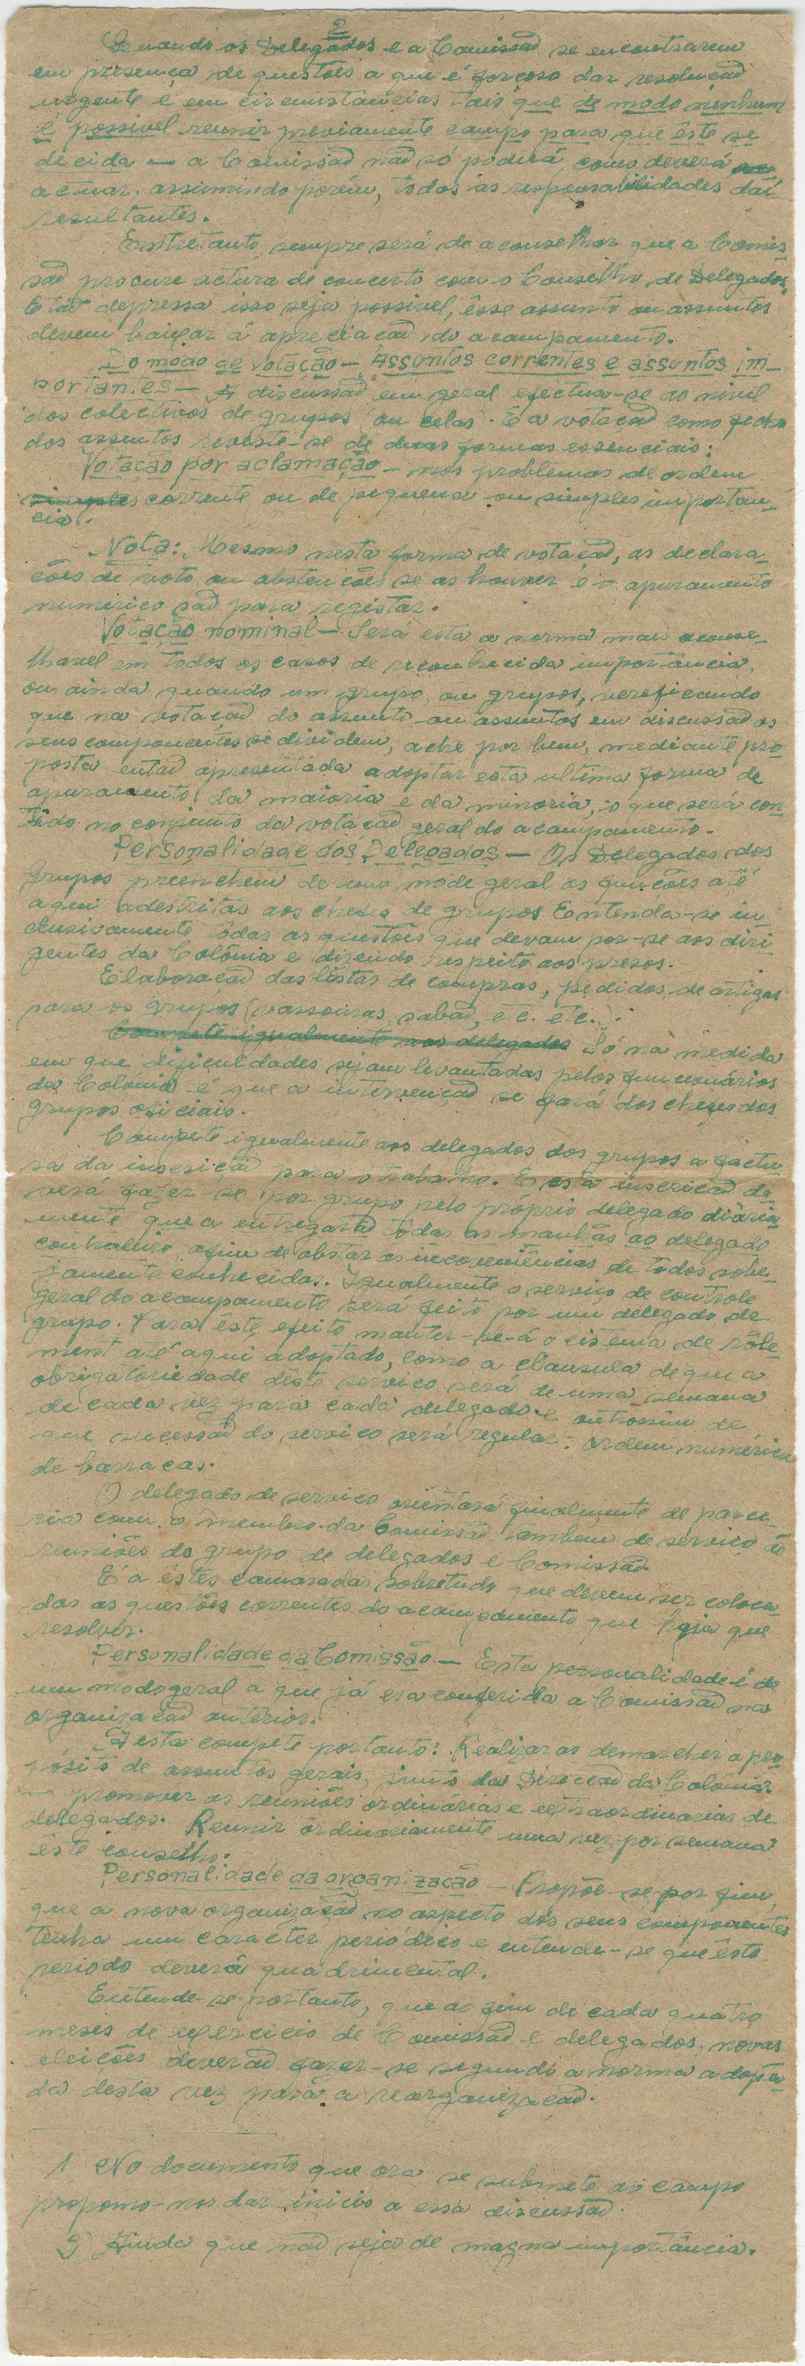 2
Quando os Delegados e a Comissão se encontrarem
em presença de questões a que é forçoso dar resolução
urgente e em circunstâncias tais que de modo nenhum
é possivel reunir previamente campo para que êste se
decida — a Comissão não só poderá, como deverá
actuar. assumindo porém, todas as responsabilidades daí
resultantes.
Entretanto, sempre será de aconselhar que a Comis-
são procure actuar de concerto com o Conselho de Delegados.
E tão depressa isso seja possivel, êsse assunto ou assuntos
devem baixar á apreciação do acampamento.
Do modo de votação — Assuntos correntes e assuntos im-
portantes — A discussão em geral efectua-se ao nivel
dos colectivos de grupos ou celas. E a votação como fecho
dos assuntos reveste-se de duas formas essenciais:
Votação por aclamação — nos problemas de ordem
simples corrente ou de pequena ou simples importan-
cia.
Nota: Mesmo nesta forma de votação, as declara-
ções de voto, ou abstenções se as houver e o apuramento
numérico são para registar.
Votação nominal — Será esta a norma mais aconse-
lhavel em todos os casos de reconhecida importância,
ou ainda quando um grupo, ou grupos, verificando
que na votação do assunto ou assuntos em discussão os
seus componentes se dividem, ache por bem, mediante pro-
posta então apresentada adoptar esta ultima forma de
apuramento da maioria e da minoria, o que será con-
tado no conjunto da votação geral do acampamento.
Personalidade dos Delegados — Os Delegados dos
grupos preenchem de um modo geral as funções até
aqui adestritas aos chefes de grupos. Entenda-se in-
clusivamente todas as questões que devam por-se aos diri-
gentes da Colônia e dizendo respeito aos presos.
Elaboração das listas de compras, pedidos de artigos
para os grupos (vassouras, sabão, etc. etc.):
Compete igualmente aos delegados Só na medida
em que dificuldades sejam levantadas pelos funcionários
da Colónia é que a intervenção se fará dos chefes dos
grupos oficiais.
Compete igualmente aos delegados dos grupos a factu-
ra da inscrição para o trabalho. E esta inscrição de-
verá fazer-se por grupo pelo próprio delegado diária-
mente que a entregará todas as manhãs ao delegado
afim de obstar as inconveniências de todos sobe-
jamente conhecidas. Igualmente o serviço de controle
geral do acampamento será feito por um delegado de
grupo. Para êste efeito manter-se-á o sistema de role-
ment até aqui adoptado, como a clausula de que a
obrigatoriedade dêste serviço será de uma semana
de cada vez para cada delegado e outrossim de
que sucessão do serviço será regular: ordem numérica
de barracas.
O delegado de serviço orientará finalmente de parce-
ria com o membro da Comissão tambem de serviço as
reuniões do grupo de delegados e Comissão.
E a êstes camaradas sobretudo que devem ser coloca-
das as questões correntes do acampamento que haja que
resolver.
Personalidade da Comissão — Esta personalidade é de
um modo geral a que já era conferida a Comissão na
organização anterior.
A esta compete portanto: Realizar as demarches a pro-
pósito de assuntos gerais, junto da Direcção da Colónia.
promover as reuniões ordinárias e extraordinarias de
delegados. Reunir ordinariamente uma vez por semana
êste conselho.
Personalidade da organização — Propõe-se por fim
que a nova organização no aspecto dos seus componentes
tenha um caracter periódico e entende-se que êste
periodo deverá quadrimestral.
Entende-se portanto, que ao fim de cada quatro
meses de exercicio de Comissão e delegados, novas
eleições deverão fazer-se segundo a norma adopta-
da desta vez para a reorganização.
1 No documento que ora se submete ao campo
propomo-nos dar inicio a essa discussão.
2) Ainda que não seja de magna importância.